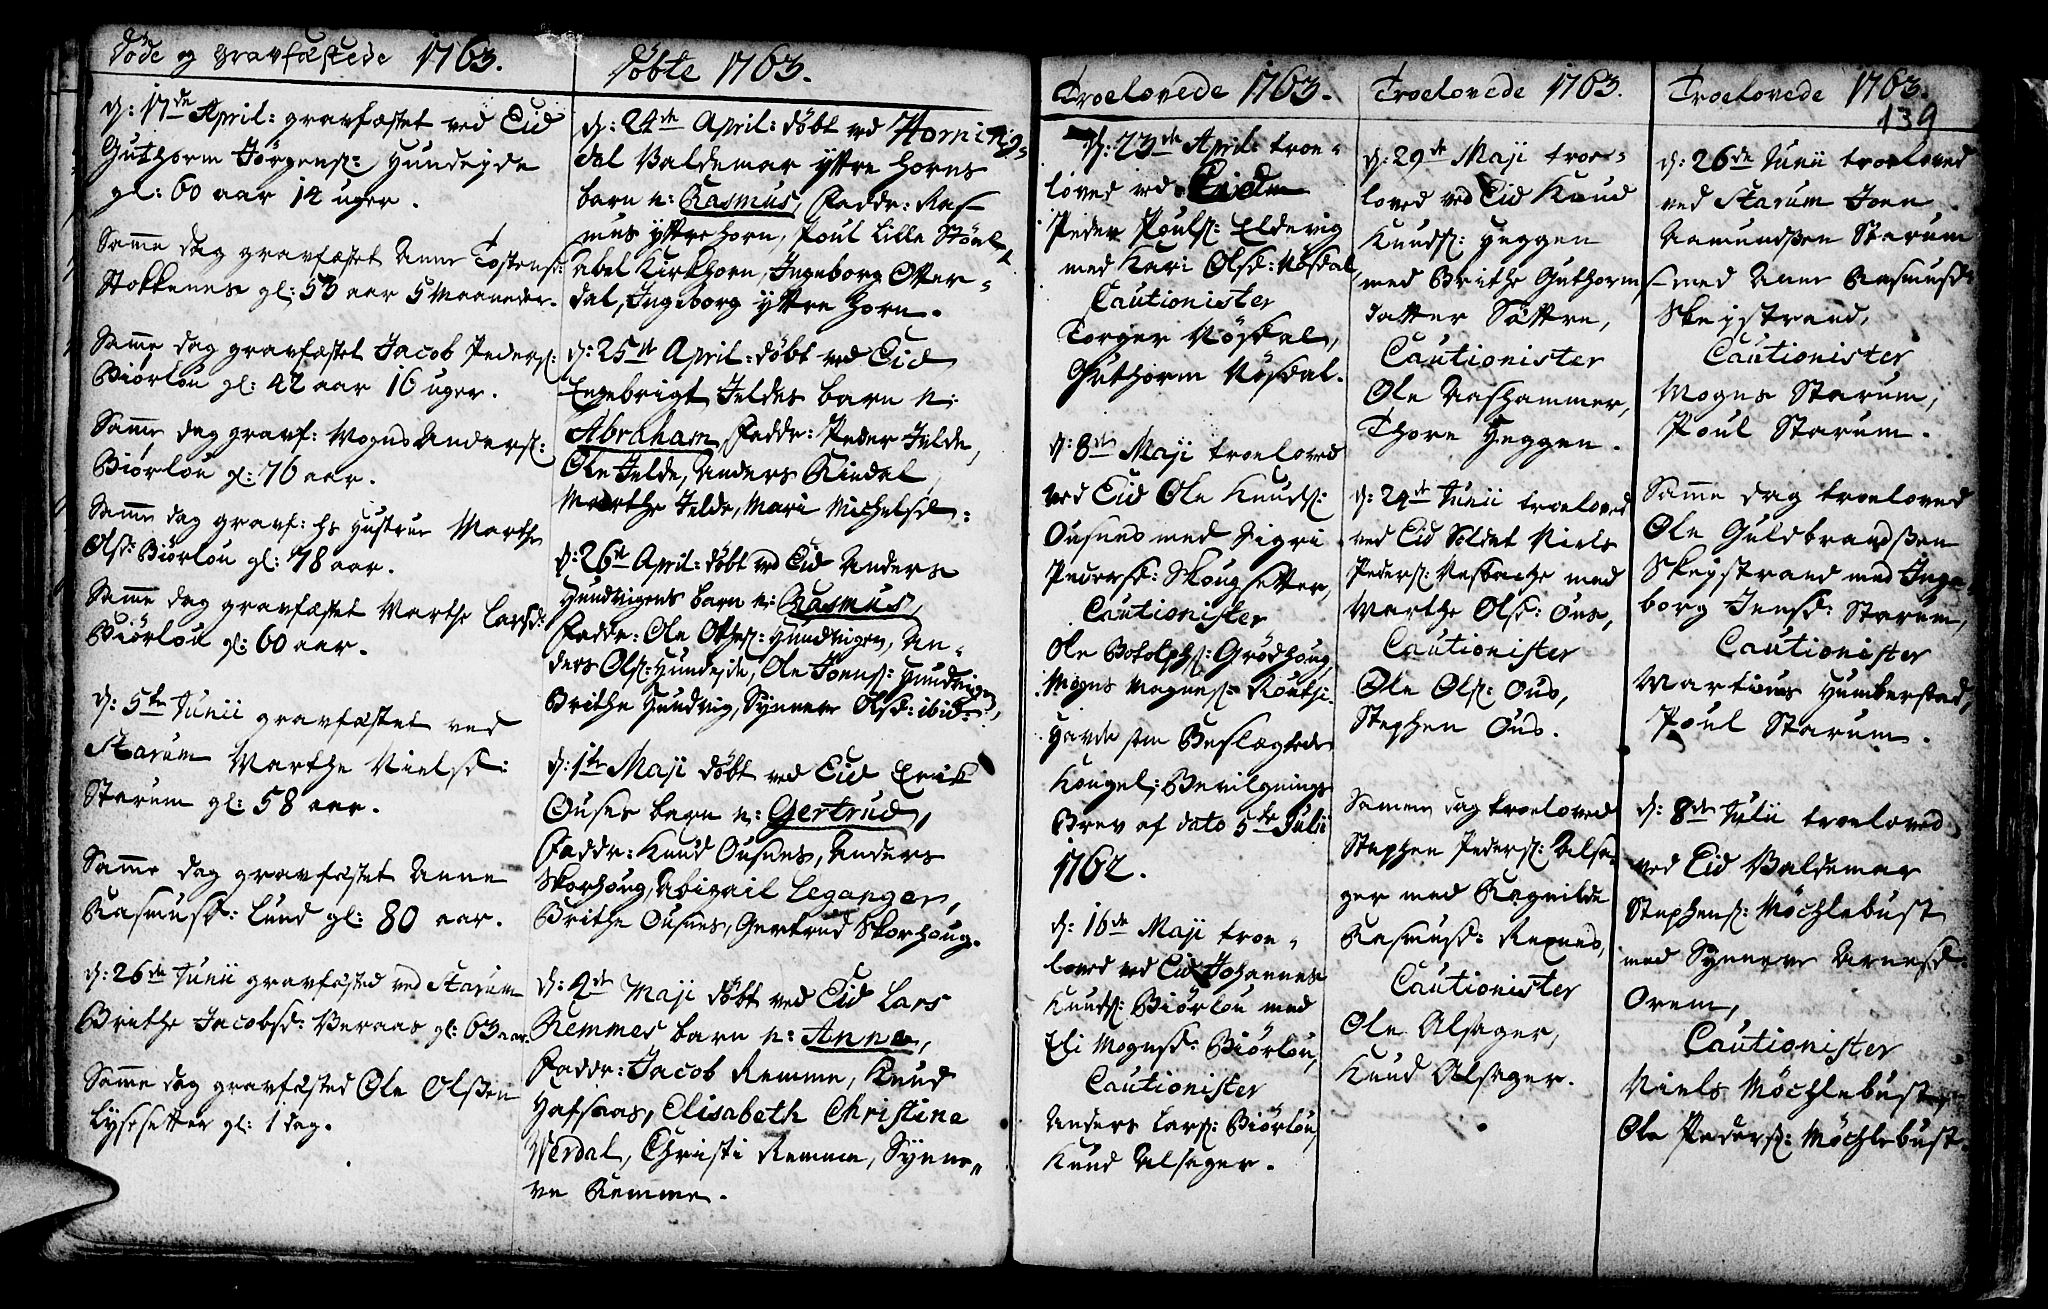 Døde og gravfæstede 1763.
d: 17de April: gravfæstet ved Eid
Guthorm Jørgens: Hundeide
gl: 60 aar 12 uger.
Samme dag gravfæstet Anne Tostensd:
Stokkenes gl: 53 aar 5 Maaneder.
Samme dag gravfæstet Jacob Peders:
Biørlou gl: 42 aar 16 uger.
Samme dag gravf: Mogns Anders:
Biørlou gl: 76 aar.
Samme dag gravf: hs Hustrue Marthe
Olsd: Biørlou gl: 78 aar.
Samme dag gravfæstet Marthe Larsd:
Biørlou gl: 60 aar.
d: 5te Junii gravfæstet ved
Starum Marthe Nielsd:
Starum gl: 58 aar.
Samme dag gravfæstet Anne
Rasmusd: Lund gl: 80 aar.
d: 26de Junii gravfæsted ved Starum
Brithe Jacobsd: Beraas gl: 63 aar.
Samme dag gravfæsted Ole Olssen
Lysesetter gl: 1 dag.
Døbte 1763.
d: 24de April: døbt ved Horning-
dal Valdemar yttre Horns
barn n: Rasmus, Faddr: Ras-
mus yttre Horn, Poul Lille
Abel Kirkhorn, Ingeborg Otter-
dal, Ingeborg yttre Horn.
d: 25de April: døbt ved Eid
Engebrigt Jeldes barn n:
Abraham, Faddr: Peder Jelde,
Ole Jelde, Anders Rindal,
Marthe Jelde, Mari Michelsd:
d: 26de April: døbt ved Eid Anders
Hundvigens barn n: Rasmus,
Faddr: Ole Hundvigen, An-
ders Ols: Hundeide, Ole Joens: Hundvigen
Brithe Hundvig, Synneve Olsd: ibid:
d: 1te Maji døbt ved Eid Erick
Ouses barn n: Gertrud,
Faddr: Knud Ousnes, Anders
Skorhoug, Abigail Leganger,
Brithe Ousnes, Gertrud Skorhoug.
d: 4de Maji døbt ved Eid Lars
Remmes barn n: Anne,
Faddr: Jacob Remme, Knud
Hafsaas, Elisabeth Christine
Nerdal, Christi Remme, Synne-
ve Remme.
Troelovede 1763.
d: 23de April: troe-
loved ved Eid
Peder Pouls: Eldevig
med Kari Olsd: Nøsdal,
Cautionister
Torger Nøsdal,
Guthorm Nøsdal.
d: 8de Maji troeloved
ved Eid Ole Knuds:
Ousnes med Sigri
Pedersd: Skougsetter,
Cautionister
Ole Botolphs: Grødhoug,
Mogns Mognes:
Havde som Beslægtede
Kongel: Bevilgnings
Brev af dato 5te Julii
1762.
d: 16de Maji troe-
loved ved Eid Johannes
Knuds: Biørlou med
Eli Mognsd: Biørlou,
Cautionister
Anders Lars: Biørlou,
Knud Alsager.
Troelovede 1763.
d: 29de Maji troe-
loved ved Eid Knud
Knuds: Heggen
med Brithe Guthorms-
datter Sættre,
Cautionister
Ole Aashammer,
Thore Heggen.
d: 24de Junii troeloved
ved Eid Soldat Niels
Peders: Nesbache med
Marthe Olsd: Ous,
Cautionister
Ole Ols: Ous,
Stephen Ous.
Samme dag troeloved
Stephen Peders: Alsa-
ger med Ragnilde
Rasmusd: Rexnes,
Cautionister
Ole Alsager,
Knud Alsager.
Troelovede 1763.
139
d: 26de Junii troeloved
ved Starum Joen
Aamundssen Starum
med Anne Rasmusd:
Skeistrand,
Cautionister
Mogns Starum,
Poul Starum.
Samme dag troeloved
Ole Guldbrandssen
Skeistrand med Inge-
borg Jensd: Starum,
Cautionister
Martinus Humberstad,
Poul Starum.
d: 8de Julii troeloved
ved Eid Valdemar
Stephens: Møchlebust
med Synneve Arnesd:
Orem,
Cautionister
Niels Møchlebust,
Ole Peders: Møchlebust.